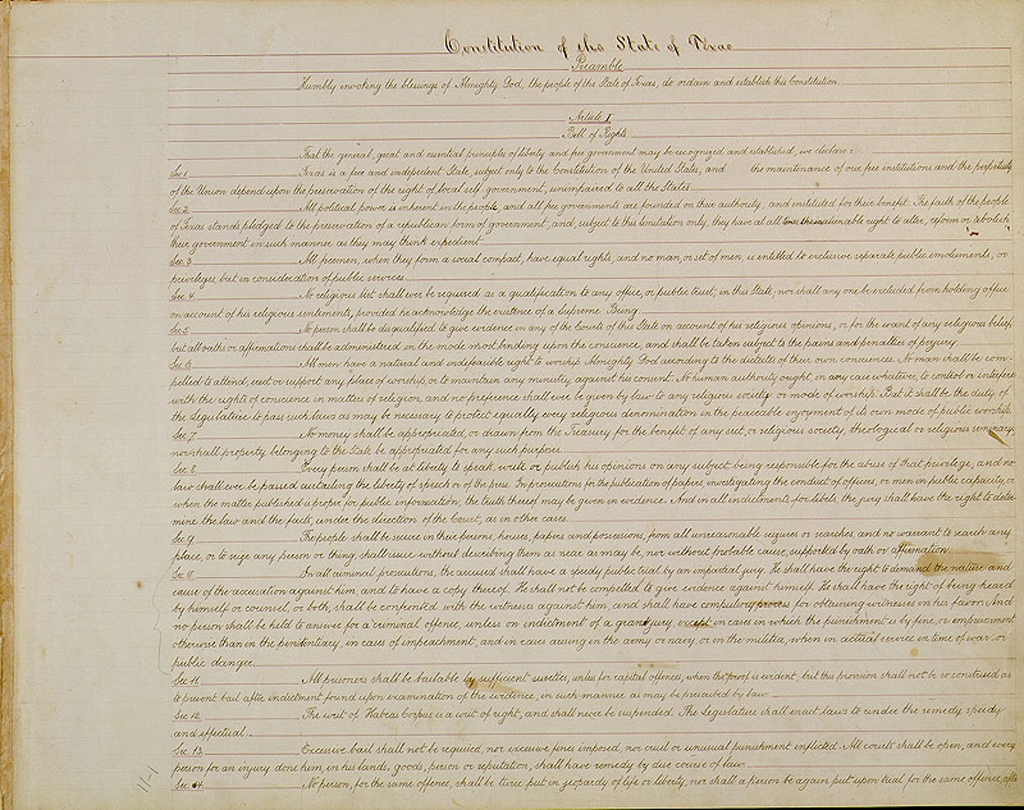 Constitution of the State of Texas
Preamble
Humbly invoking the blessings of Almighty God, the people of the State of Texas, do ordain and establish this Constitution.
Article I
Bill of Rights
That the general, great and essential principles of liberty and free government may be recognized and established, we declare:
Sec 1 Texas is a free and independent State, subject only to the Constitution of the United States, and the maintenance of our free institutions and the perpetuity
of the Union depend upon the preservation of the right of local self government, unimpaired to all the States.
Sec 2 All political power is inherent in the people, and all free governments are founded on their authority, and instituted for their benefit. The faith of the people
of Texas stands pledged to the preservation of a republican form of government, and, subject to this limitation only, they have at all times the inalienable right to alter, reform or abolish
their government in such manner as they may think expedient.
Sec 3 All freemen, when they form a social compact, have equal rights, and no man, or set of men, is entitled to exclusive separate public emoluments, or
privileges, but in consideration of public services.
Sec. 4. No religious test shall ever be required as a qualification to any office, or public trust, in this State; nor shall any one be excluded from holding office
on account of his religious sentiments, provided he acknowledge the existence of a Supreme Being.
Sec 5 No person shall be disqualified to give evidence in any of the Courts of this State on account of his religious opinions, or for the want of any religious belief,
but all oaths or affirmations shall be administered in the mode most binding upon the conscience, and shall be taken subject to the pains and penalties of perjury.
Sec 6 All men have a natural and indefeasible right to worship Almighty God according to the dictates of their own consciences. No man shall be com-
pelled to attend, erect or support any place of worship, or to maintain any ministry against his consent. No human authority ought, in any case whatever, to control or interfere
with the rights of conscience in matters of religion, and no preference shall ever be given by law to any religious society or mode of worship. But it shall be the duty of
the Legislature to pass such laws as may be necessary to protect equally every religious denomination in the peaceable enjoyment of its own mode of public worship.
Sec. 7. No money shall be appropriated, or drawn from the Treasury for the benefit of any sect, or religious society, theological or religious seminary;
nor shall property belonging to the State be appropriated for any such purposes.
Sec. 8. Every person shall be at liberty to speak, write or publish his opinions on any subject being responsible for the abuse of that privilege; and no
law shall ever be passed curtailing the liberty of speech or of the press. In prosecutions for the publication of papers, investigating the conduct of officers, or men in public capacity, or
when the matter published is proper for public information, the truth thereof may be given in evidence. And in all indictments for libels, the jury shall have the right to deter-
mine the law and the facts, under the direction of the Court, as in other cases.
Sec 9. The people shall be secure in their persons, houses, papers and possessions, from all unreasonable seizures or searches, and no warrant to search any
place, or to seize any person or thing, shall issue without describing them as near as may be, nor without probable cause, supported by oath or affirmation.
Sec 10. In all criminal prosecutions, the accused shall have a speedy public trial by an impartial jury. He shall have the right to demand the nature and
cause of the accusation against him, and to have a copy thereof. He shall not be compelled to give evidence against himself. He shall have the right of being heard
by himself or counsel, or both, shall be confronted with the witnesses against him, and shall have compulsory process for obtaining witnesses in his favor. And
no person shall be held to answer for a criminal offence, unless on indictment of a grand jury, except in cases in which the punishment is by fine, or imprisonment
otherwise than in the penitentiary, in cases of impeachment, and in cases arising in the army or navy, or in the militia, when in actual service in time of war or
public danger.
Sec 11. All prisoners shall be bailable by sufficient sureties, unless for capital offences, when the proof is evident, but this provision shall not be so construed as
to prevent bail after indictment found upon examination of the evidence, in such manner as may be prescribed by law.
Sec 12. The writ of Habeas Corpus is a writ of right, and shall never be suspended. The Legislature shall enact laws to render the remedy speedy
and effectual.
Sec. 13. Excessive bail shall not be required, nor excessive fines imposed, nor cruel or unusual punishment inflicted. All courts shall be open, and every
person for an injury done him, in his lands, goods, person or reputation, shall have remedy by due course of law.
Sec. 14. No person, for the same offence, shall be twice put in jeopardy of life or liberty, nor shall a person be again put upon trial, for the same offence, after
11-1